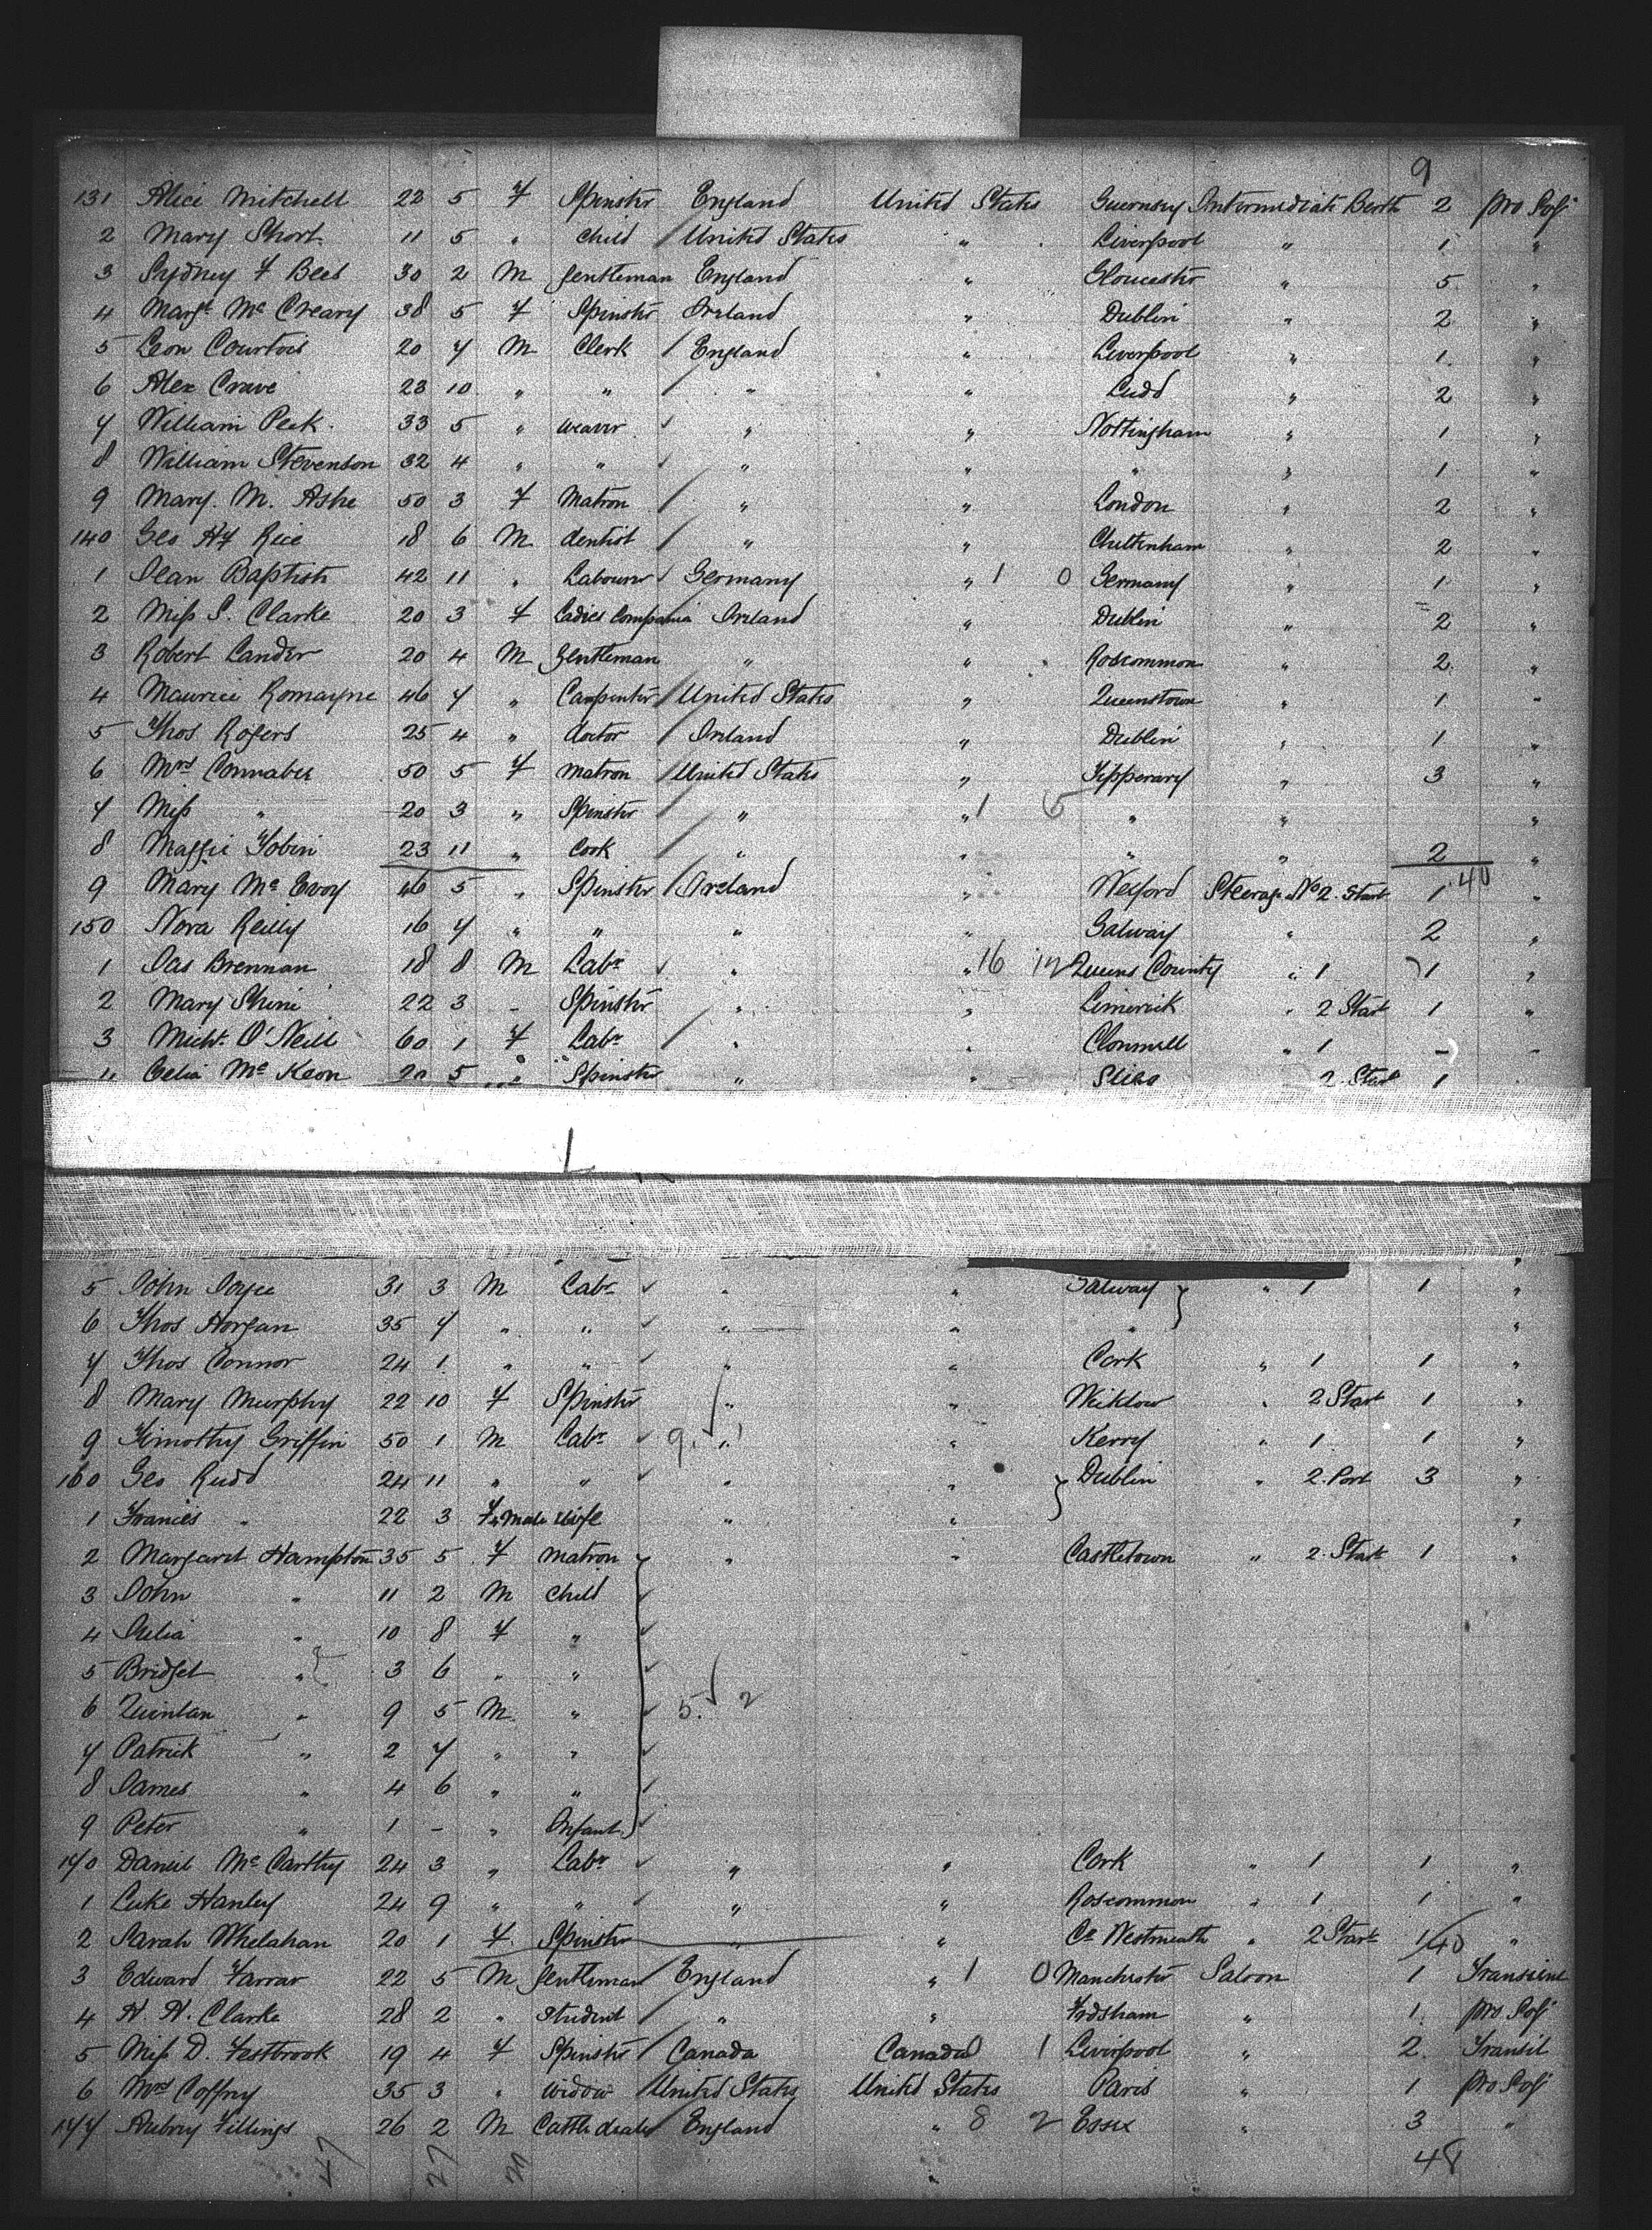 9
131 Alice Mitchell 22 5 F Spinster England United States Guernsey Intermediate Berth 2 pro Soj
2 Mary Short 11 5 " Child / United States " Liverpool " 1 "
3 Sydney F Bees 30 2 M gentleman England " Gloucester " 5 "
4 Margt Mc Creary 38 5 F Spinster Ireland " Dublin " 2 "
5 Leon Courtois 20 7 M Clerk / England " Liverpool " 1 "
6 Alex Crave 23 10 " " / " " " 2 "
7 William Peek 33 5 " weaver ✓ " " Nottingham " 1 "
8 William Stevenson 32 4 " " ✓ " " " " 1 "
9 Mary. M. Ashe 50 3 F Matron / " " London " 2 "
140 Geo Hy Rice 18 6 M dentist / " " Cheltenham " 2 "
1 Jean Baptiste 42 11 " Labourer ✓ Germany " 1 0 Germany " 1 "
2 Miss S. Clarke 20 3 F Ladies Companion Ireland " Dublin " 2 "
3 Robert Lander 20 4 M Gentleman " " Roscommon " 2 "
4 Maurice Romayne 46 7 " Carpenter / United States " Queenstown " 1 "
5 Thos Rogers 25 4 " doctor / Ireland " Dublin " 1 "
6 Mrs 50 5 F matron / United States " Tipperary " 3 "
7 Miss " 20 3 " Spinster / " " 1 5 " " "
8 Maggie Tobin 23 11 " Cook / " " " " 2 "
9 Mary Mc Evoy 46 5 " Spinster / Ireland " Wexford Steerage No 2. Start 1 40 "
150 Nora Reilly 16 7 " " " " Galway " 2 "
1 Jas Brennan 18 8 M Labr ✓ " " 16 12 Queens County " 1 1 "
2 Mary Shine 22 3 - Spinster " " Limerick " 2 Start 1 "
3 Michl O'Neill 60 1 F Labr / " " Clonmell " 1 - "
4 Celia Mc Keon 20 5 " Spinster " " Sligo 2. Start 1
5 John Joyce 31 3 M Labr ✓ " " Galway } " 1 1 "
6 Thos Horgan 35 7 " " ✓ " " " "
7 Thos Connor 24 1 " " ✓ " " Cork " 1 1 "
8 Mary Murphy 22 10 F Spinster " " Wicklow " 2 Start 1 "
9 Timothy Griffin 50 1 M Labr ✓ 9. ✓ " " Kerry " 1 1 "
160 Geo Rudd 24 11 " " ✓ " " } Dublin " 2. Port 3 "
1 Frances " 22 3 Female wife " " "
2 Margaret Hampton 35 5 F matron " " Castletown " 2. Start 1 "
3 John " 11 2 M Child ✓
4 Julia " 10 8 F " ✓
5 Bridget " 3 6 " " ✓
6 Quinlan " 9 5 M " ✓ 5. ✓ 2
7 Patrick " 2 7 " " ✓
8 James " 4 6 " " ✓
9 Peter " 1 - " Infant ✓
170 Daniel Mc Carthy 24 3 " Labr ✓ " " Cork " 1 1 "
1 Luke Hanley 24 9 " " ✓ " " Roscommon " 1 1 "
2 Sarah Whelahan 20 1 F Spinster " " Co Westmeath " 2 Start 1 40 "
3 Edward Farrar 22 5 M gentleman / England " 1 0 Manchester Saloon 1 Transient
4 H. H. Clarke 28 2 " Student / " " Frdsham " 1 pro Soj
5 Miss D. Festbrook 19 4 F Spinster / Canada Canada 1 Liverpool " 2. Transit
6 Mrs Coffrey 35 3 " widow / United States United States Paris " 1 pro Soj
177 Aubrey Fillings 26 2 M Cattle dealer England " 8 2 Essex " 3 "
47 27 20 48